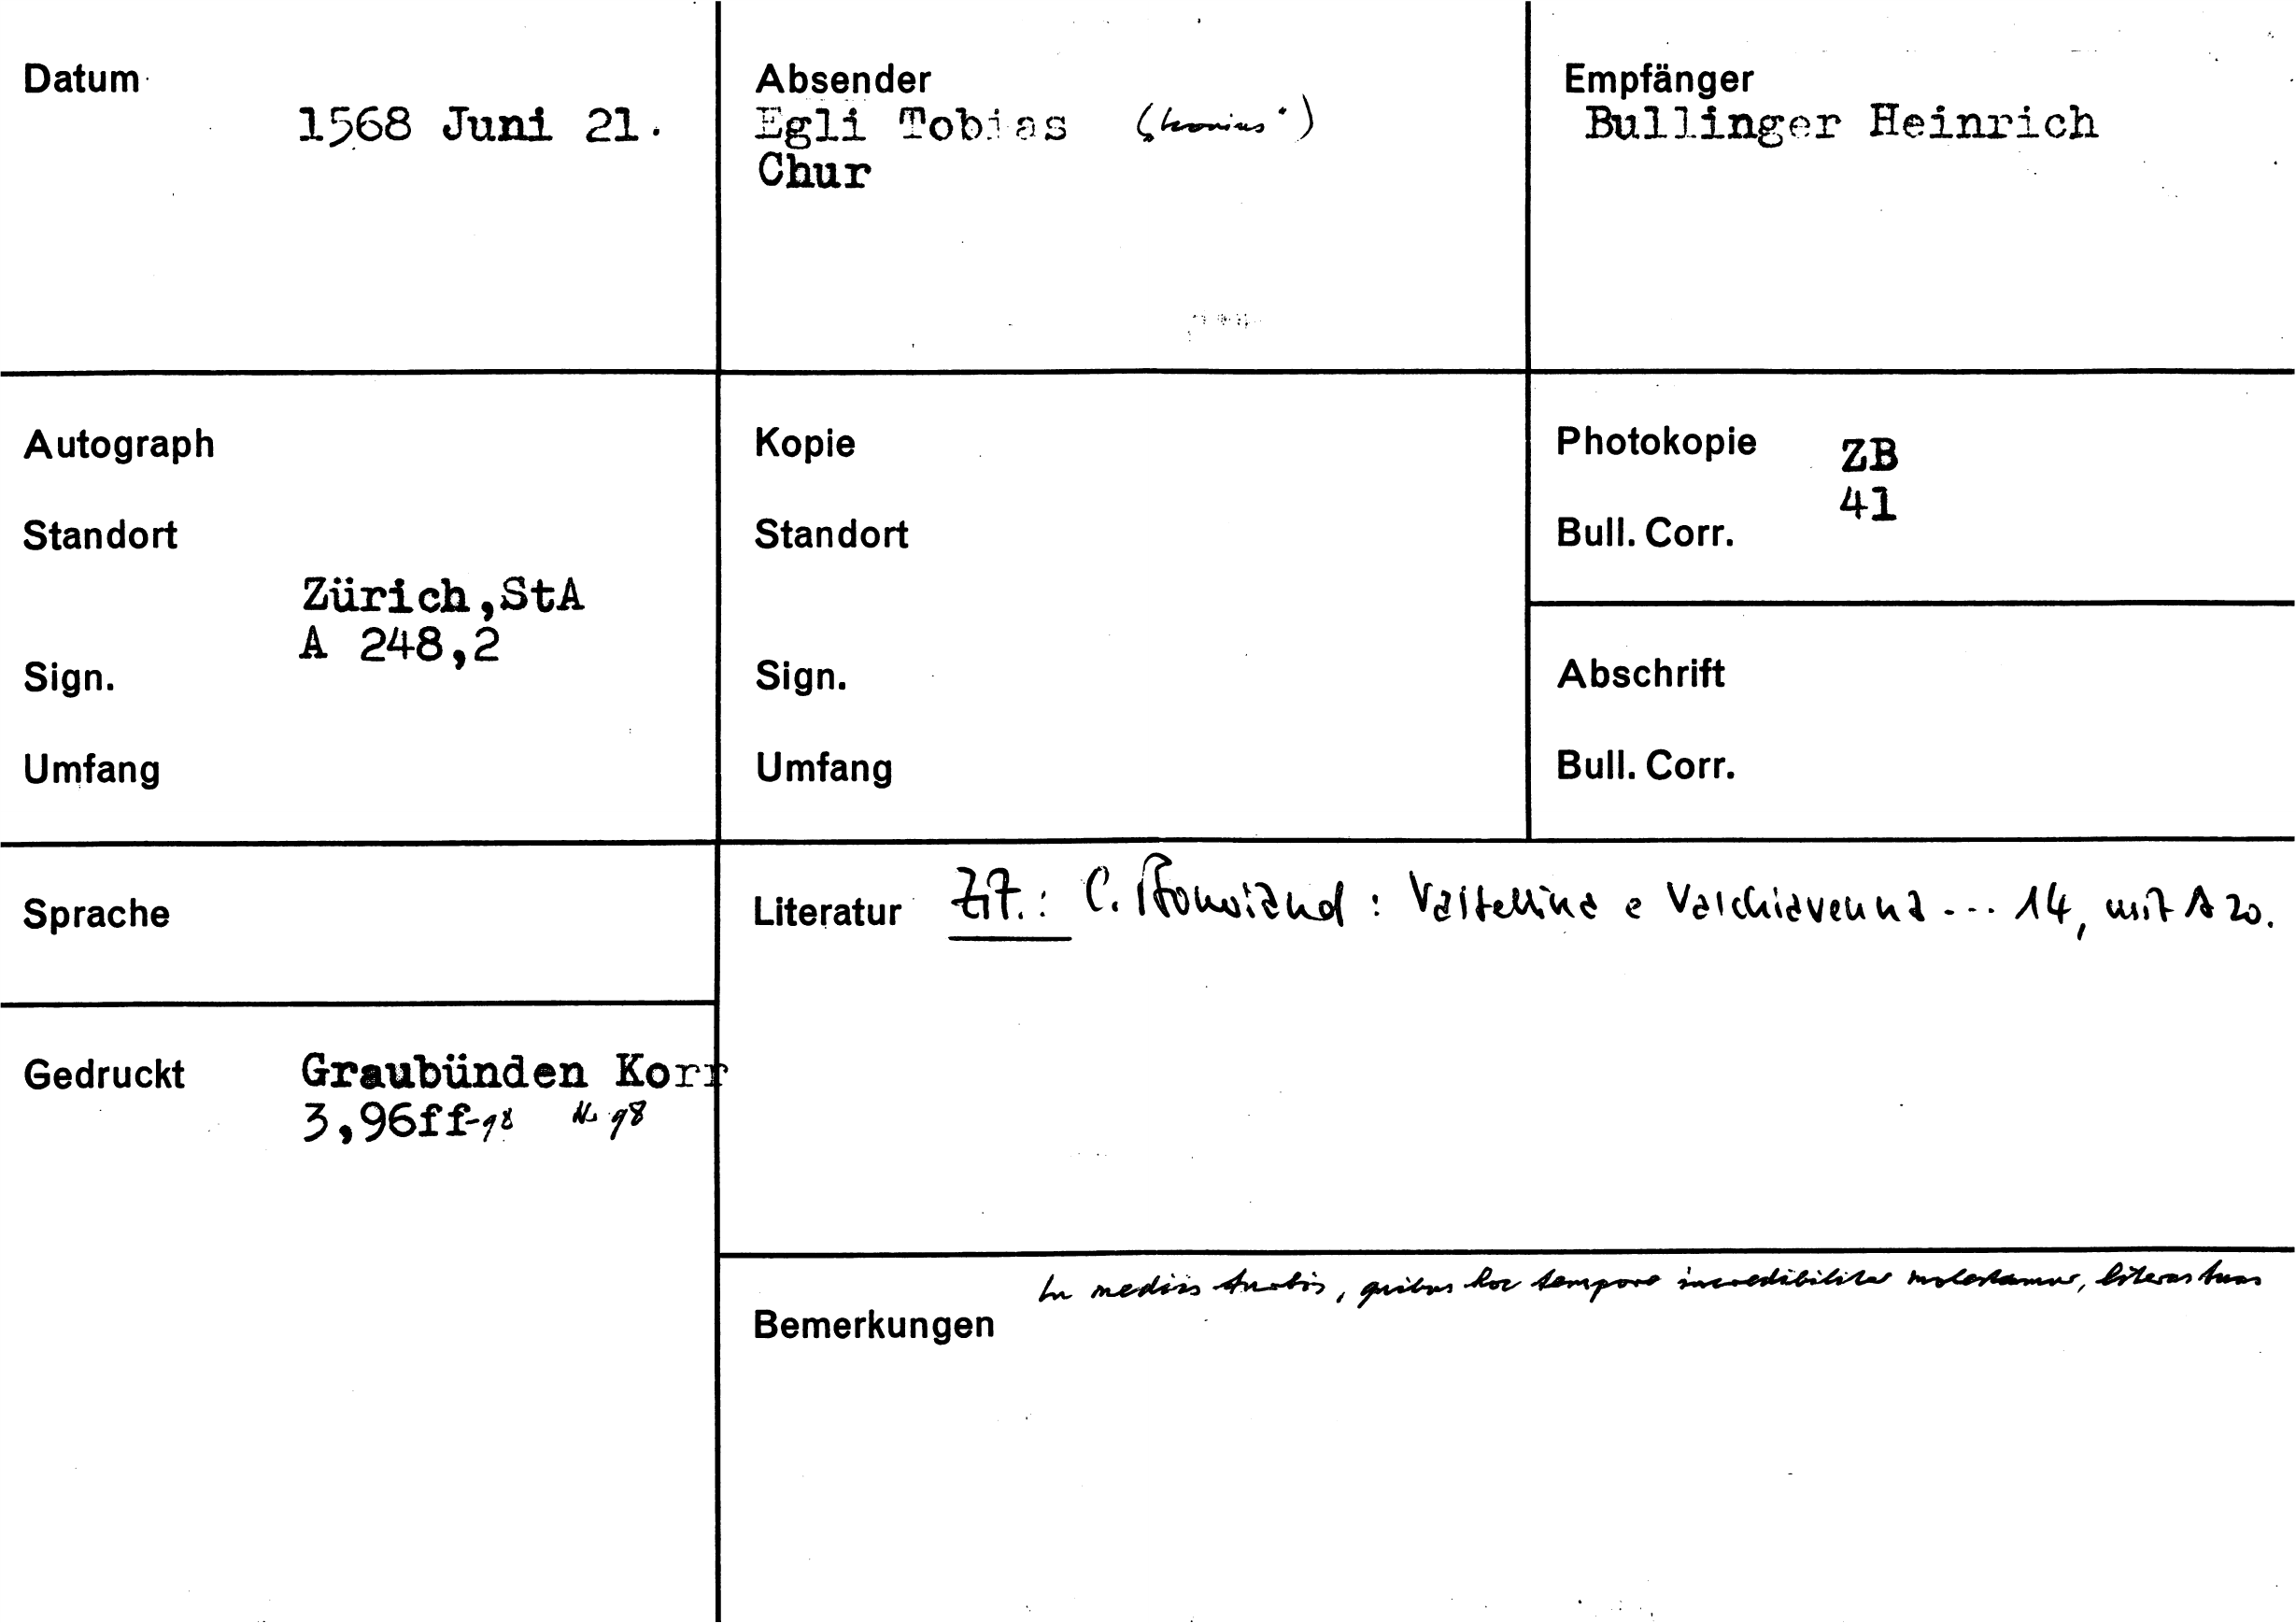 Datum
1568 Juni 21.
Absender
Egli Tobias
Chur
Empfänger
Bullinger Heinrich
Autograph
Standort
Zürich,StA
A 248,2
Sign.
Umfang
Kopie
Standort
Sign.
Umfang
Photokopie ZB
41
Bull. Corr.
Abschrift
Bull. Corr.
Sprache
Literatur Zit.: C. Bonorand : Valtellina e Valchiavenna ... 14, mit A 20.
Gedruckt Graubünden Korr
3,96ff-98 Nr 98
In mediis turbis, quibus hoc tempore incredibiliter molestamur, literas tuas
Bemerkungen